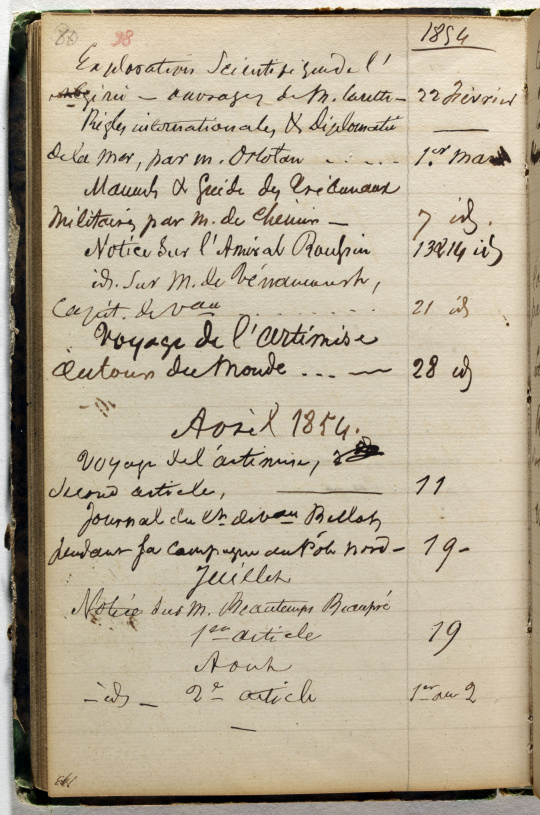 80 98 1854
Exploration Scientifique de l'
algérie — ouvrages de M. Carette — 22 février
Règles internationales & Diplomatie —
de la Mer, par m. Ortolan ..... 1.er mars
Manuels & Guide des Tribunaux
Militaires par M. de Chénier — 7 id.
Notice sur l'Amiral Roussin 13 & 14 id
id. sur M. de Vénancourt,
Capit. de vau ......... 21 id
Voyage de l'artémise
autour du Monde ... — 28 id
Avril 1854.
Voyage de l'artémise,
Second article, — 11
Journal du Lt. de vau Bellot,
pendant sa Campagne au Pôle nord — 19 -
Juillet
Notice sur M. Beautemps Beaupré
1er article 19
Aout
— id — 2e article 1er ou 2
—